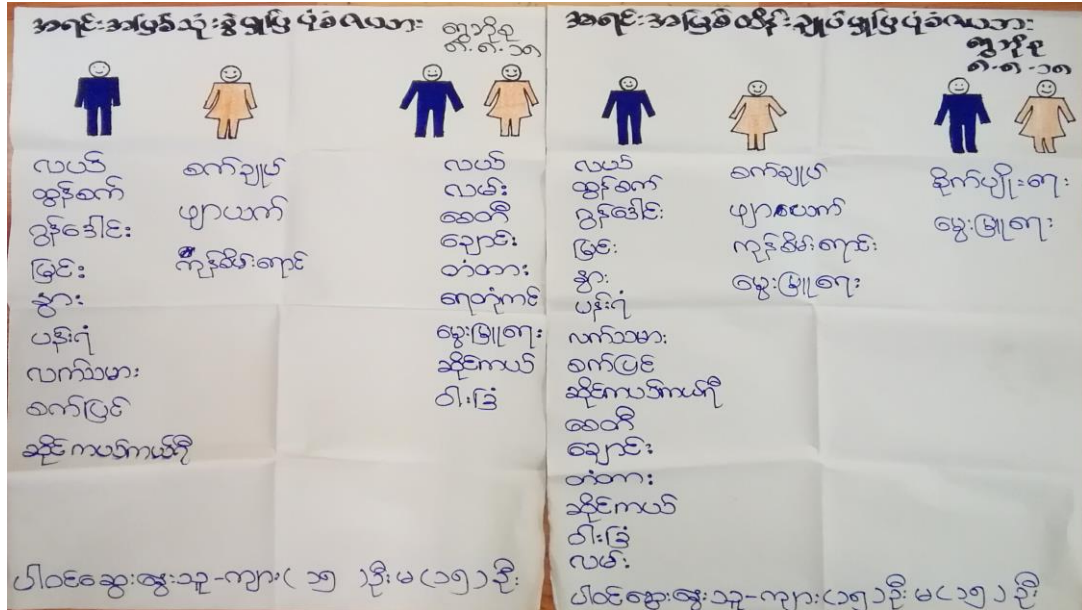 အရင်းအမြစ်သုံးစွဲမှုပြပုံစံဇယား
ရွာဘိုစု
၈.၈.၁၈
လယ်
ထွန်စက်
ဂွန်ဒေါင်း
မြင်း
နွား
ပန်းရံ
လက်သမား
စက်ပြင်
ဆိုင်ကယ်ကယ်ရီ
စက်ချုပ်
ဖျာယက်
ကုန်စိမ်းရောင်း
လယ်
လမ်း
စေတီ
ချောင်း
တံတား
ရေတုံကင်
မွေးမြူရေး
ဆိုင်ကယ်
ဝါးခြံ
ပါဝင်ဆွေးနွေးသူ-ကျား( ၁၅ )ဦး မ(၁၅)ဦး
အရင်းအမြစ်ထိန်းချုပ်မှုပြပုံစံဇယား
ရွာဘိုစု
၈.၈.၁၈
လယ်
ထွန်စက်
ဂွန်ဒေါင်း
မြင်း
နွား
ပန်းရံ
လက်သမား
စက်ပြင်
ဆိုင်ကယ်ကယ်ရီ
စေတီ
ချောင်း
တံတား
ဆိုင်ကယ်
ဝါးခြံ
လမ်း
စက်ချုပ်
ဖျာယက်
ကုန်စိမ်းရောင်း
မွေးမြူရေး
စိုက်ပျိုးရေး
မွေးမြူရေး
ပါဝင်ဆွေးနွေးသူ-ကျား(၁၅)ဦး မ(၁၅)ဦး